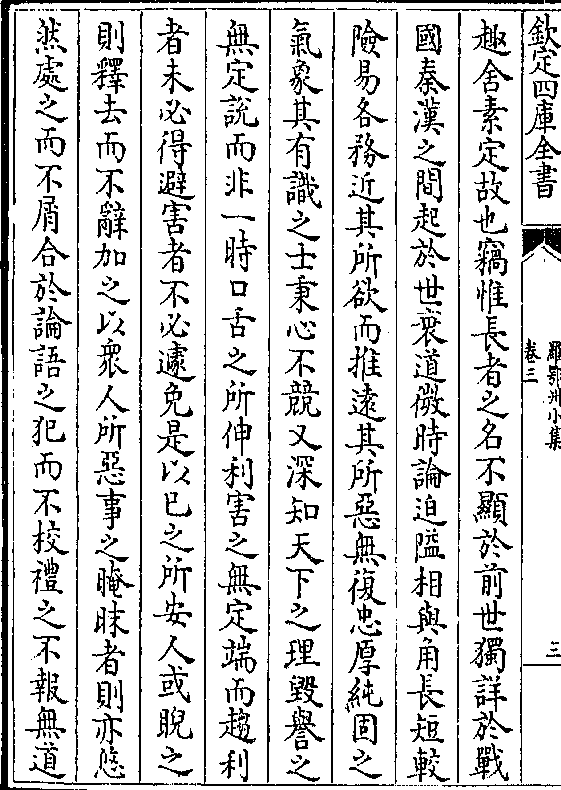 欽定四庫全書
羅鄂州小集
卷三
三
趣舍素定故也竊惟長者之名不顯於前世獨詳於戰
國秦漢之間起於世衰道微時論迫隘相與角長短較
險易各務近其所欲而推遠其所惡無復忠厚純固之
氣象其有識之士秉心不競又深知天下之理毀譽之
無定說而非一時口舌之所伸利害之無定端而趨利
者未必得避害者不必遽免是以已之所安人或睨之
則釋去而不辭加之以衆人所惡事之晻昧者則亦悠
然處之而不屑合於論語之犯而不校禮之不報無道